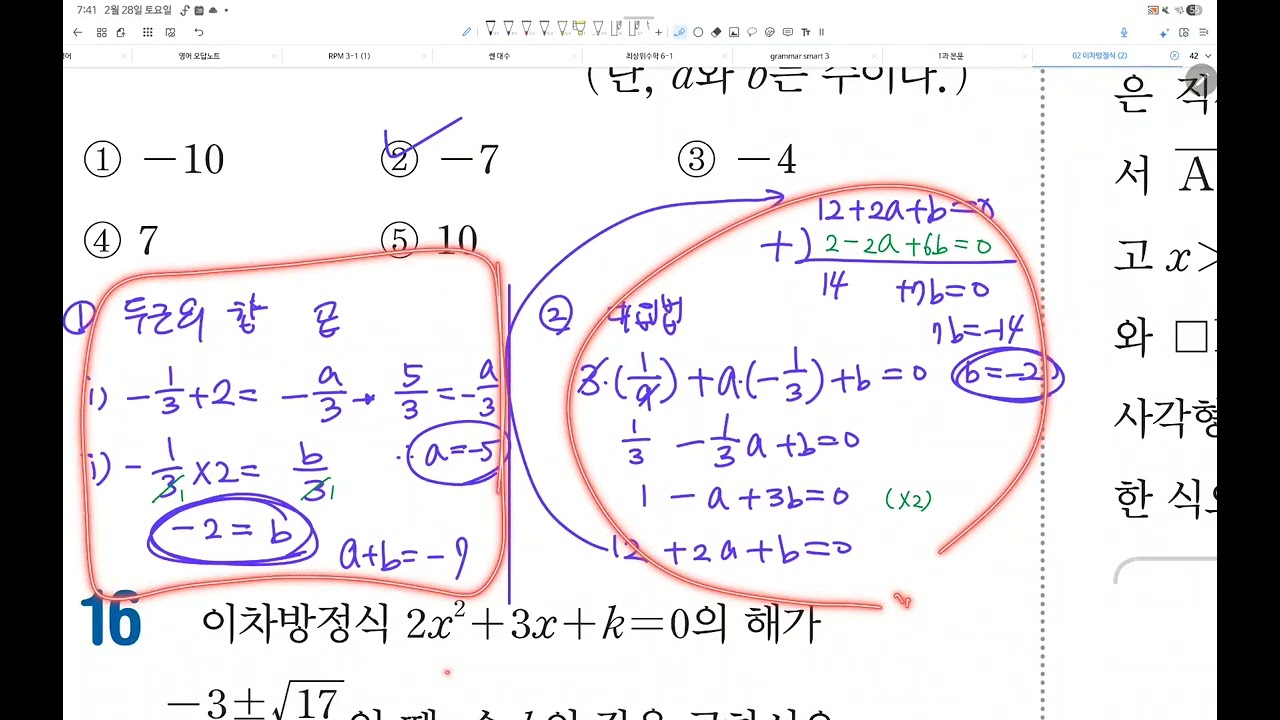 7:41 2월 28일 토요일
영어 오답노트 RPM 3-1 (1) 쎈 대수 최상위수학 6-1 grammar smart 3 1과 본문 02 이차방정식 (2) 42
(단, a와 b는 수이다.)
① -10 ② -7 ③ -4
④ 7 ⑤ 10
① 두근의 합 곱
i) -1/3+2= -a/3 → 5/3=-a/3
∴ a=-5
i) -1/3×2= b/3
-2=b
a+b=-7
② 대입법
3·(1/9)+a·(-1/3)+b=0
1/3 -1/3a+b=0
1-a+3b=0 (×2)
12+2a+b=0
12+2a+b=0
+) 2-2a+6b=0
14 +7b=0
7b=-14
b=-2
16 이차방정식 2x²+3x+k=0의 해가
-3±√17
은
서 A
고 x>
와 □
사각형
한 식으